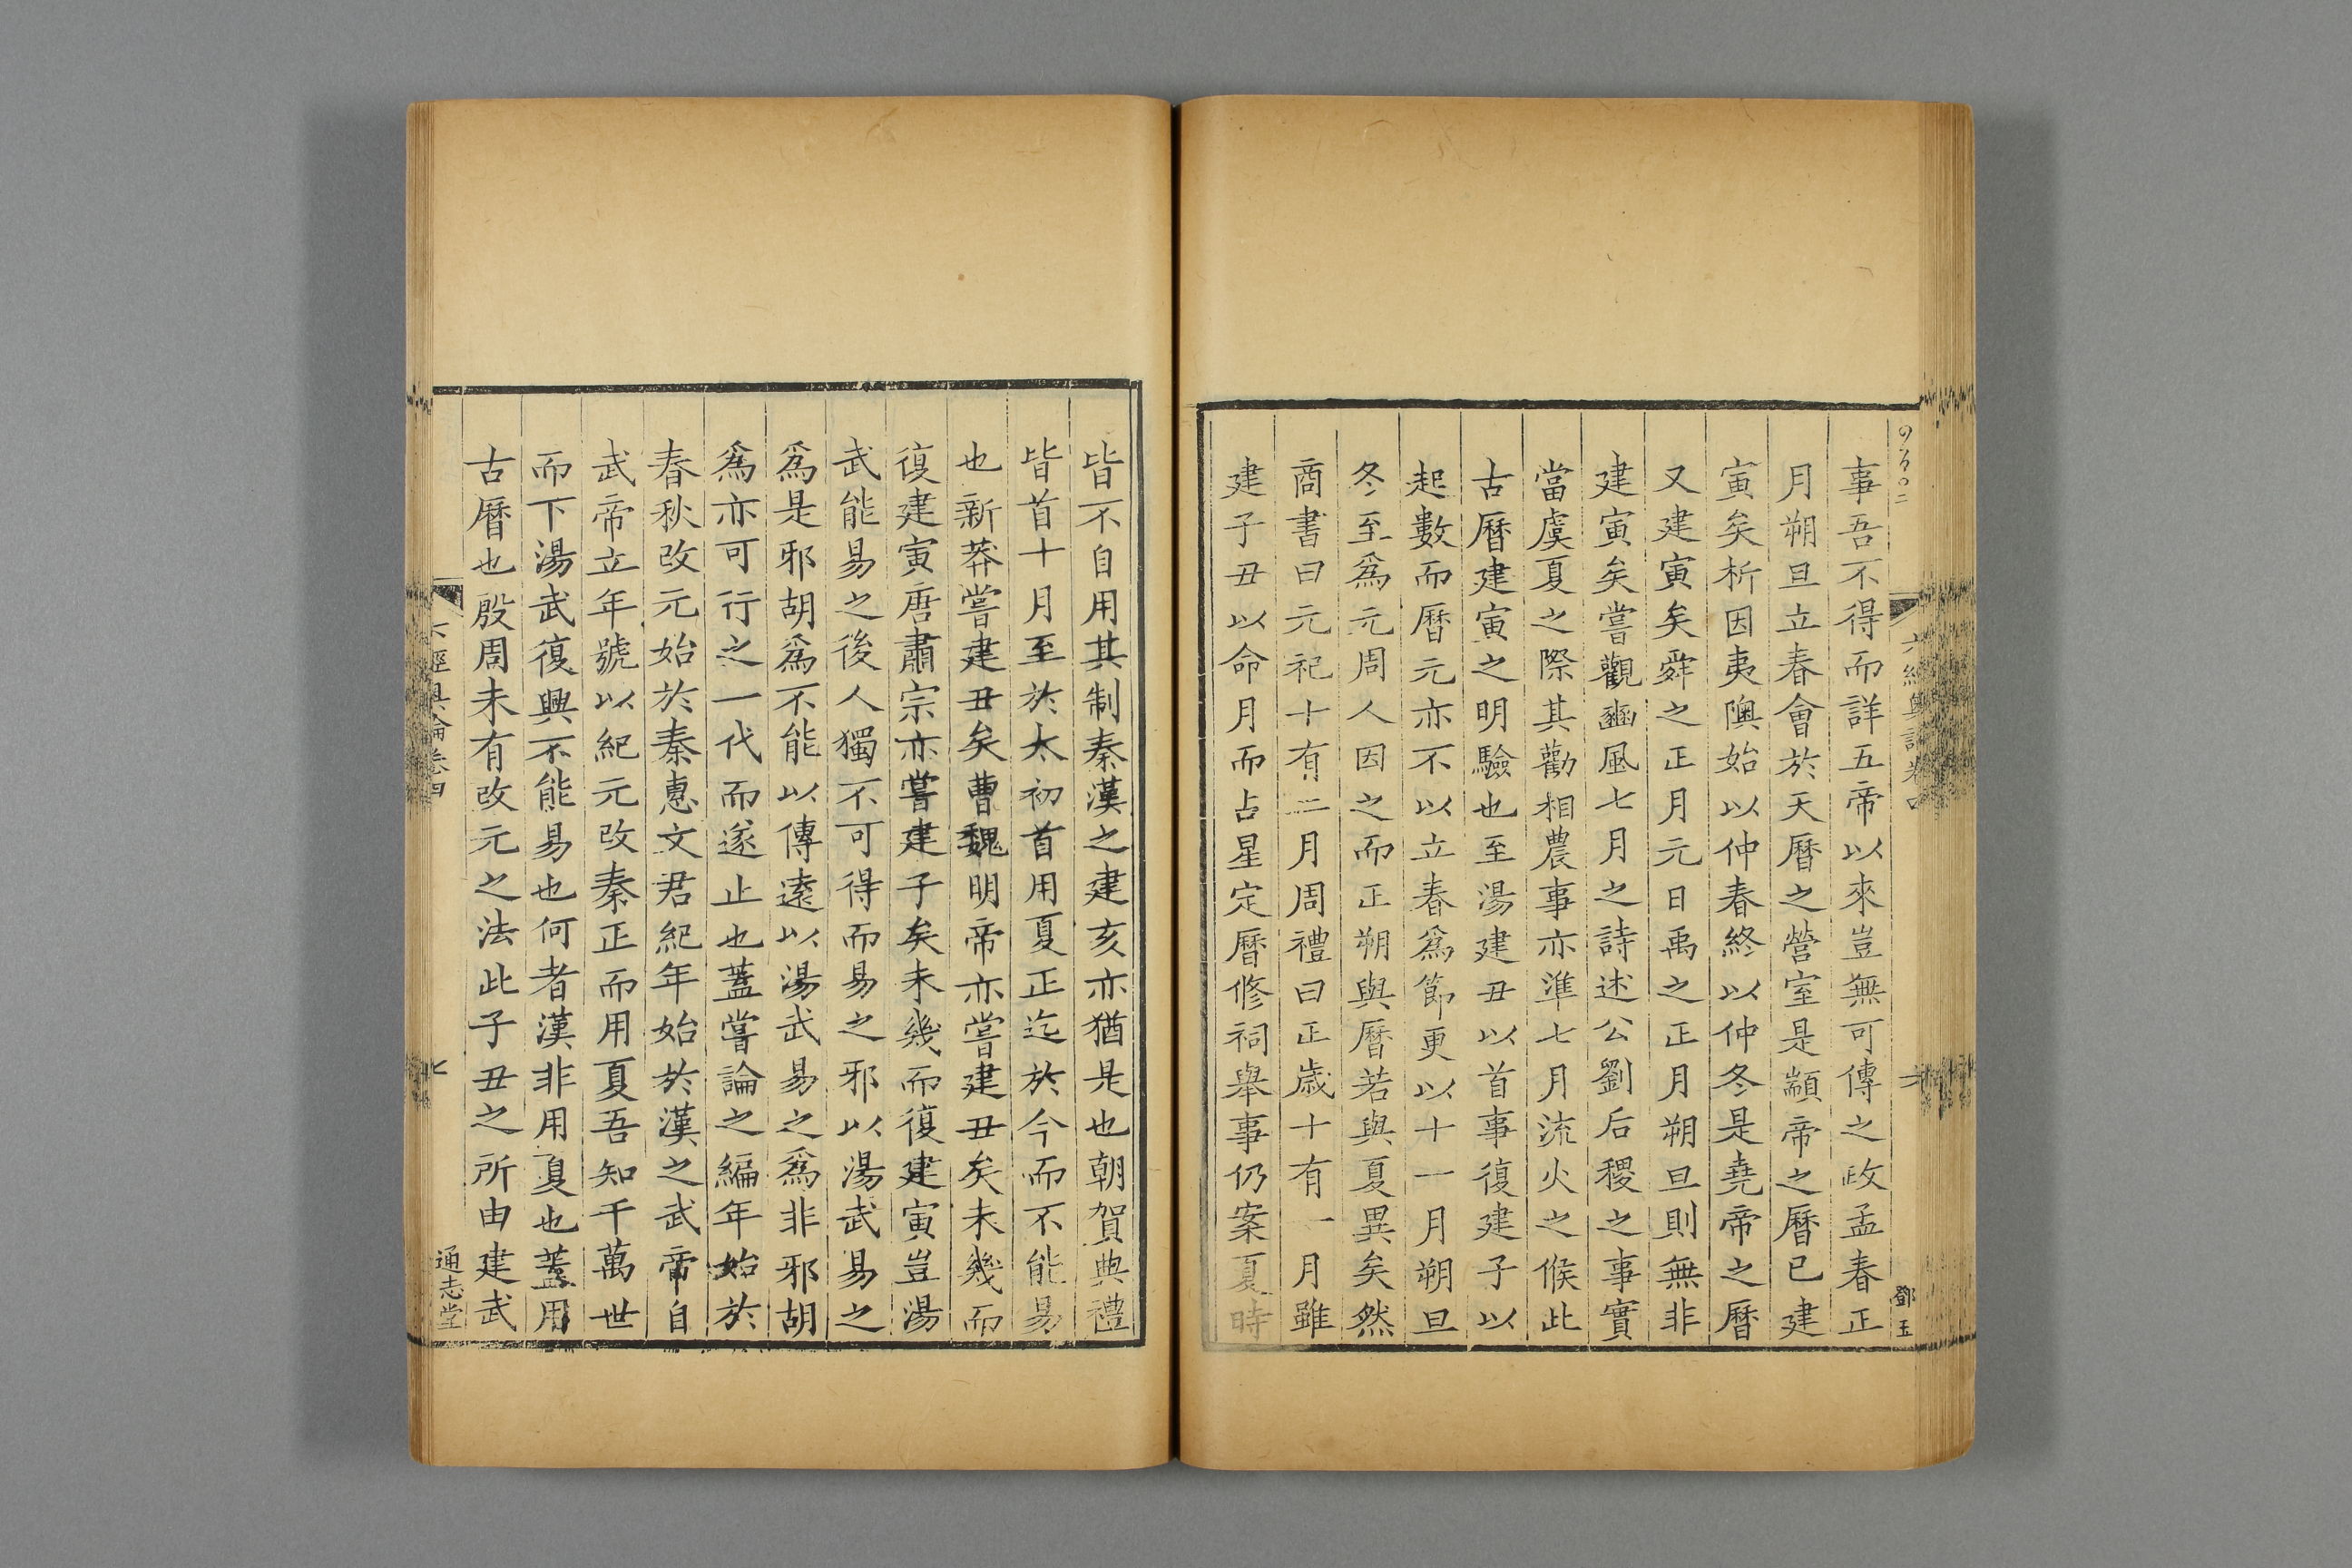 事吾不得而詳五帝以來豈無可傳之政孟春正
月朔旦立春會於天曆之營室是顓帝之曆已建
寅矣析因夷隩始以仲春終以仲冬是堯帝之曆
又建寅矣舜之正月元日禹之正月朔旦則無非
建寅矣嘗觀豳風七月之詩述公劉后稷之事實
當虞夏之際其勸相農事亦準七月流火之候此
古曆建寅之明驗也至湯建丑以首事復建子以
起數而曆元亦不以立春爲節更以十一月朔旦
冬至爲元周人因之而正朔與曆若與夏異矣然
商書曰元祀十有二月周禮曰正歲十有一月雖
建子丑以命月而占星定曆修祠舉事仍案夏時
鄧玉
皆不自用其制秦漢之建亥亦猶是也朝賀典禮
皆首十月至於太初首用夏正迄於今而不能易
也新莽嘗建丑矣曹魏明帝亦嘗建丑矣未幾而
復建寅唐肅宗亦嘗建子矣未幾而復建寅豈湯
武能易之後人獨不可得而易之邪以湯武易之
爲是邪胡爲不能以傳遠以湯武易之爲非邪胡
爲亦可行之一代而遂止也蓋嘗論之編年始於
春秋改元始於秦惠文君紀年始於漢之武帝自
武帝立年號以紀元改秦正而用夏吾知千萬世
而下湯武復興不能易也何者漢非用夏也蓋用
古曆也殷周未有改元之法此子丑之所由建武
六經奧論卷四
七
通志堂